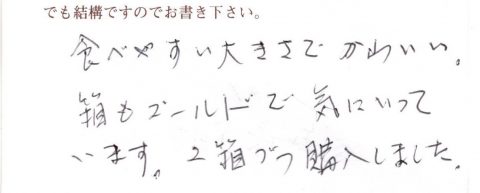 でも結構ですのでお書き下さい。
食べやすい大きさでかわいい。
箱もゴールドで気にいって
います。2箱づつ購入しました。